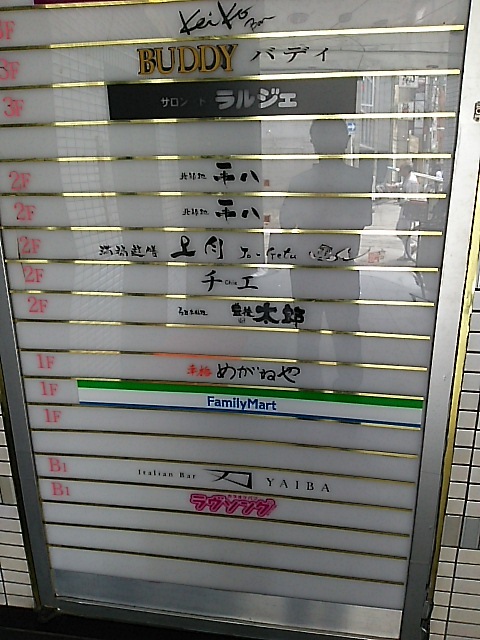 4F Keiko Bar
3F BUDDY バディ
3F サロン ド ラルジェ
2F 北新地 平八
2F 北新地 平八
2F 上月 Jo-Getu
2F チエ
2F 太郎
1F めがねや
1F FamilyMart
1F
B1 Italian Bar 刃 YAIBA
B1 ラヴソング